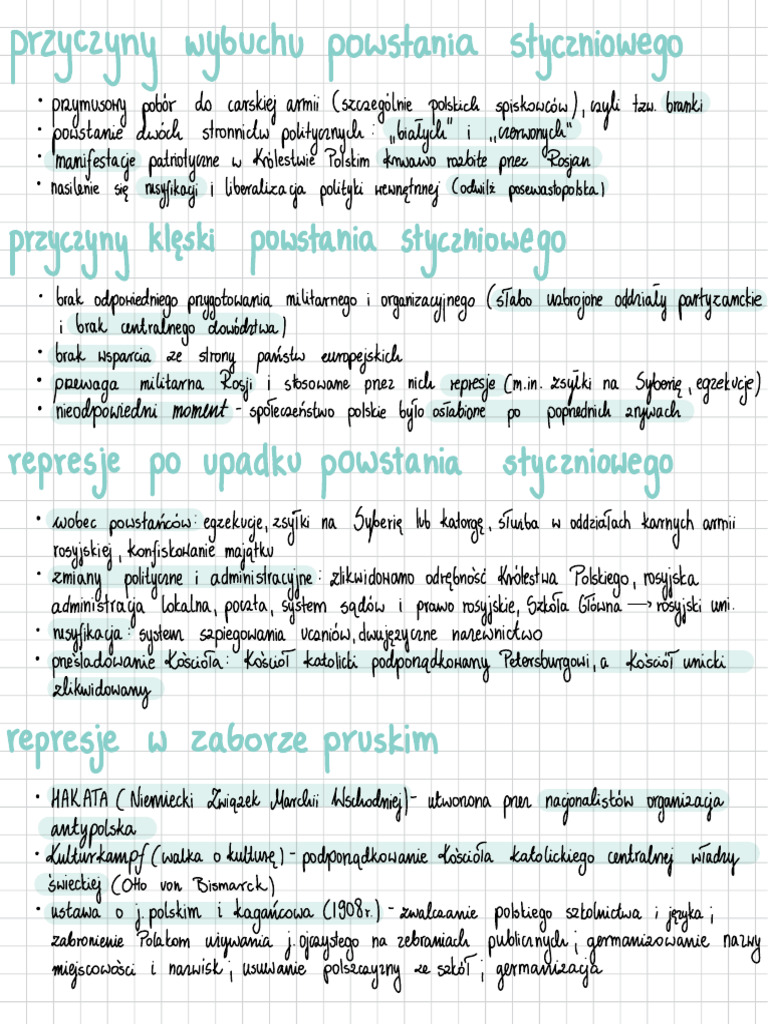 przyczyny wybuchu powstania styczniowego
• przymusowy pobór do carskiej armii (szczególnie polskich spiskowców), czyli tzw. branki
• powstanie dwóch stronnictw politycznych: „białych" i „czerwonych"
• manifestacje patriotyczne w Królestwie Polskim krwawo rozbite przez Rosjan
• nasilenie się rusyfikacji i liberalizacja polityki wewnętrznej (odwilż posewastopolska)
przyczyny klęski powstania styczniowego
• brak odpowiedniego przygotowania militarnego i organizacyjnego (słabo uzbrojone oddziały partyzanckie
i brak centralnego dowództwa)
• brak wsparcia ze strony państw europejskich
• przewaga militarna Rosji i stosowane przez nich represje (m.in. zsyłki na Syberię, egzekucje)
• nieodpowiedni moment - społeczeństwo polskie było osłabione po poprzednich zrywach
represje po upadku powstania styczniowego
• wobec powstańców: egzekucje, zsyłki na Syberię lub katorgę, służba w oddziałach karnych armii
rosyjskiej, konfiskowanie majątku
• zmiany polityczne i administracyjne: zlikwidowano odrębność Królestwa Polskiego, rosyjska
administracja lokalna, poczta, system sądów i prawo rosyjskie, Szkoła Główna → rosyjski uni.
• rusyfikacja: system szpiegowania uczniów, dwujęzyczne nazewnictwo
• prześladowanie Kościoła: Kościół katolicki podporządkowany Petersburgowi, a Kościół unicki
zlikwidowany
represje w zaborze pruskim
• HAKATA (Niemiecki Związek Marchii Wschodniej) - utworzona przez nacjonalistów organizacja
antypolska
• Kulturkampf (walka o kulturę) - podporządkowanie Kościoła katolickiego centralnej władzy
świeckiej (Otto von Bismarck)
• ustawa o j. polskim i kagańcowa (1908 r.) - zwalczanie polskiego szkolnictwa i języka;
zabronienie Polakom używania j. ojczystego na zebraniach publicznych; germanizowanie nazwy
miejscowości i nazwisk; usuwanie polszczyzny ze szkół; germanizacja